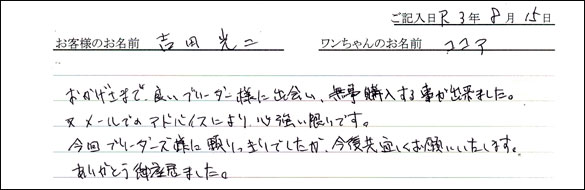 ご記入日 R3年 8月 15日
お客様のお名前 吉田 光二 ワンちゃんのお名前 ココア
おかげさまで、良いブリーダー様に出会い、無事購入する事が出来ました。
又メールでのアドバイスにより、心強い限りです。
今回ブリーダーズ様に頼りっきりでしたが、今後共宜しくお願いいたします。
ありがとう御座居ました。